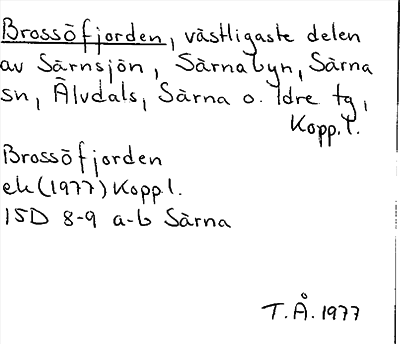 Brossöfjorden, västligaste delen
av Särnsjön, Särnabyn, Särna
sn, Älvdals, Särna o. Idre tg,
Kopp. l.
Brossöfjorden
ek (1977) Kopp l.
15D 8-9 a-b Särna
T.Å. 1977